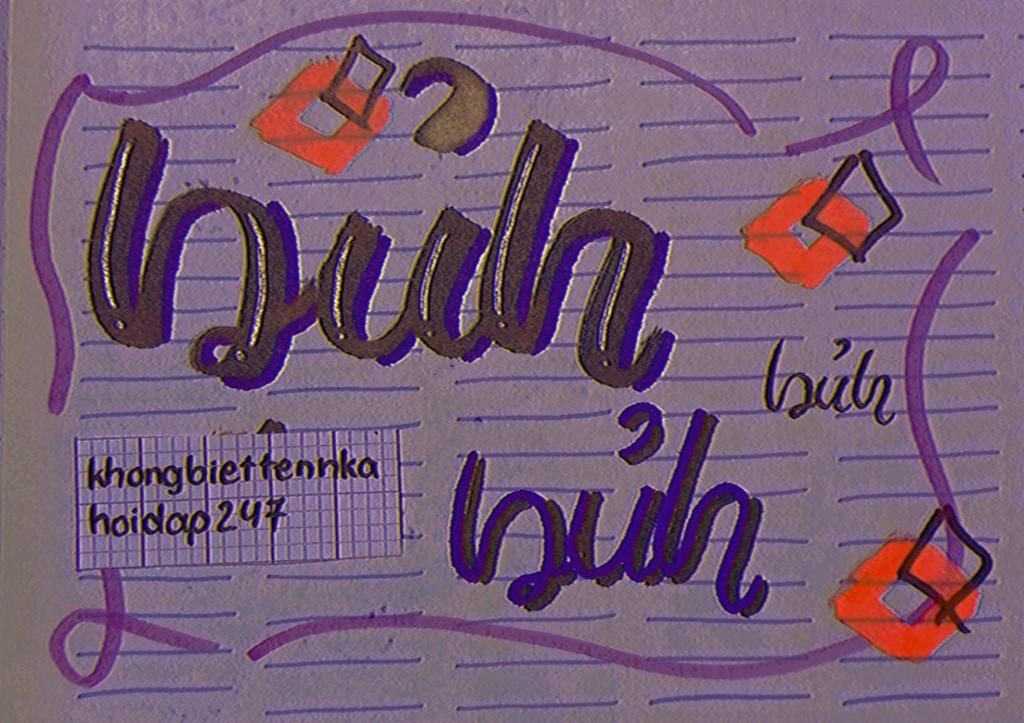 bủh
bủh
khongbiettennka
hoidap247
bủh